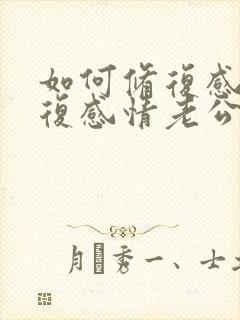 如何修復感
復感情老公
月秀一、士